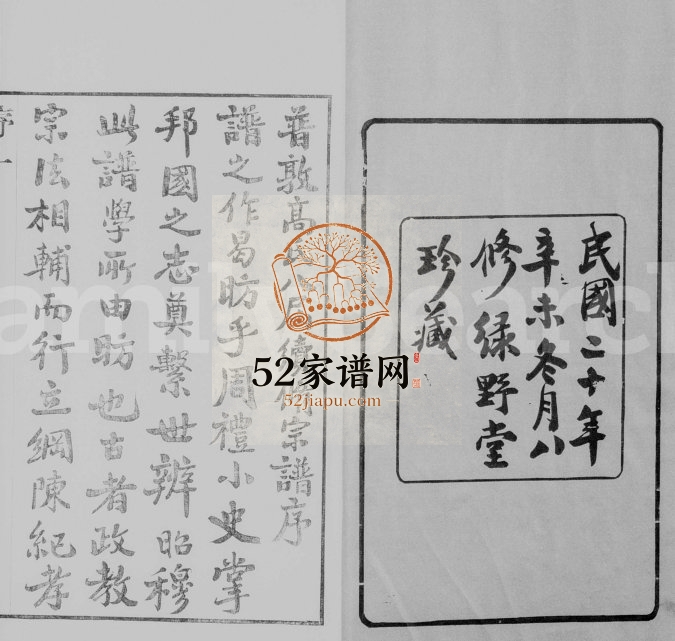 民國二十年
辛未冬月八
修綠野堂
珍藏
普敦高氏八月續修宗譜序
譜之作昜昉乎周禮小史掌
邦國之志奠繫世辨昭穆
此譜學所由昉也古者政教
宗法相輔而行立綱陳紀孝
序一
52家谱网
52jiapu.com